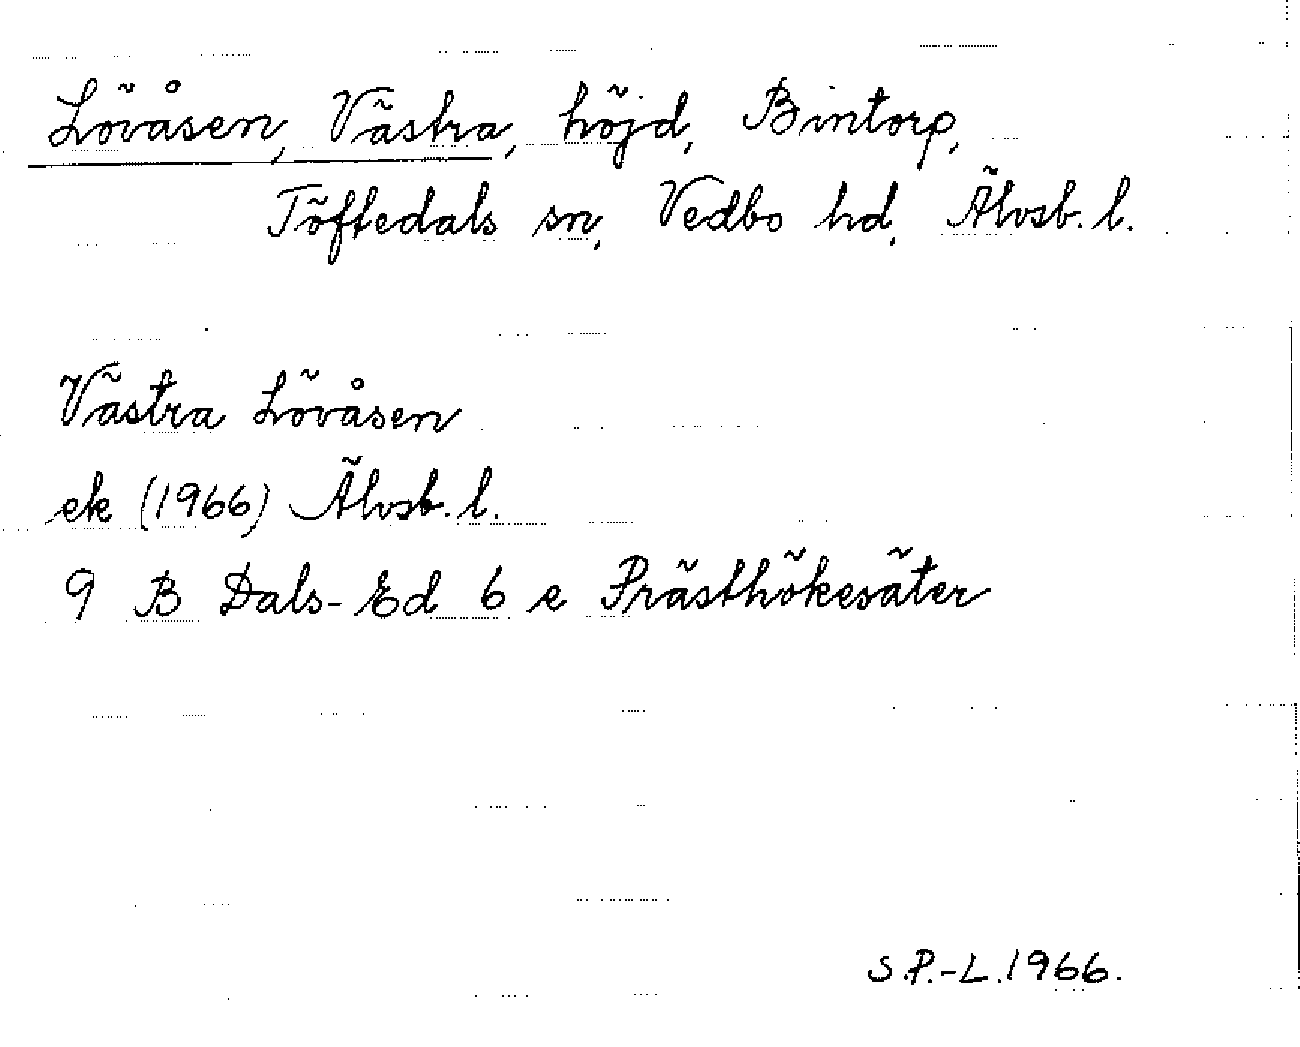 Lövåsen, Västra, höjd, Bintorp,
Töftedals sn, Vedbo hd, Älvsb. l.
Västra Lövåsen
ek (1966) Älvsb. l.
9 B Dals-Ed 6 e Prästhökesäter
S.P.-L. 1966.